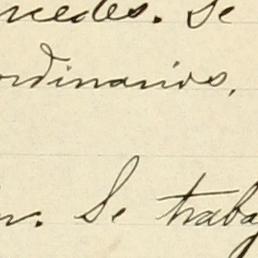 rcedes. Se
ordinarios,
n. Se traba